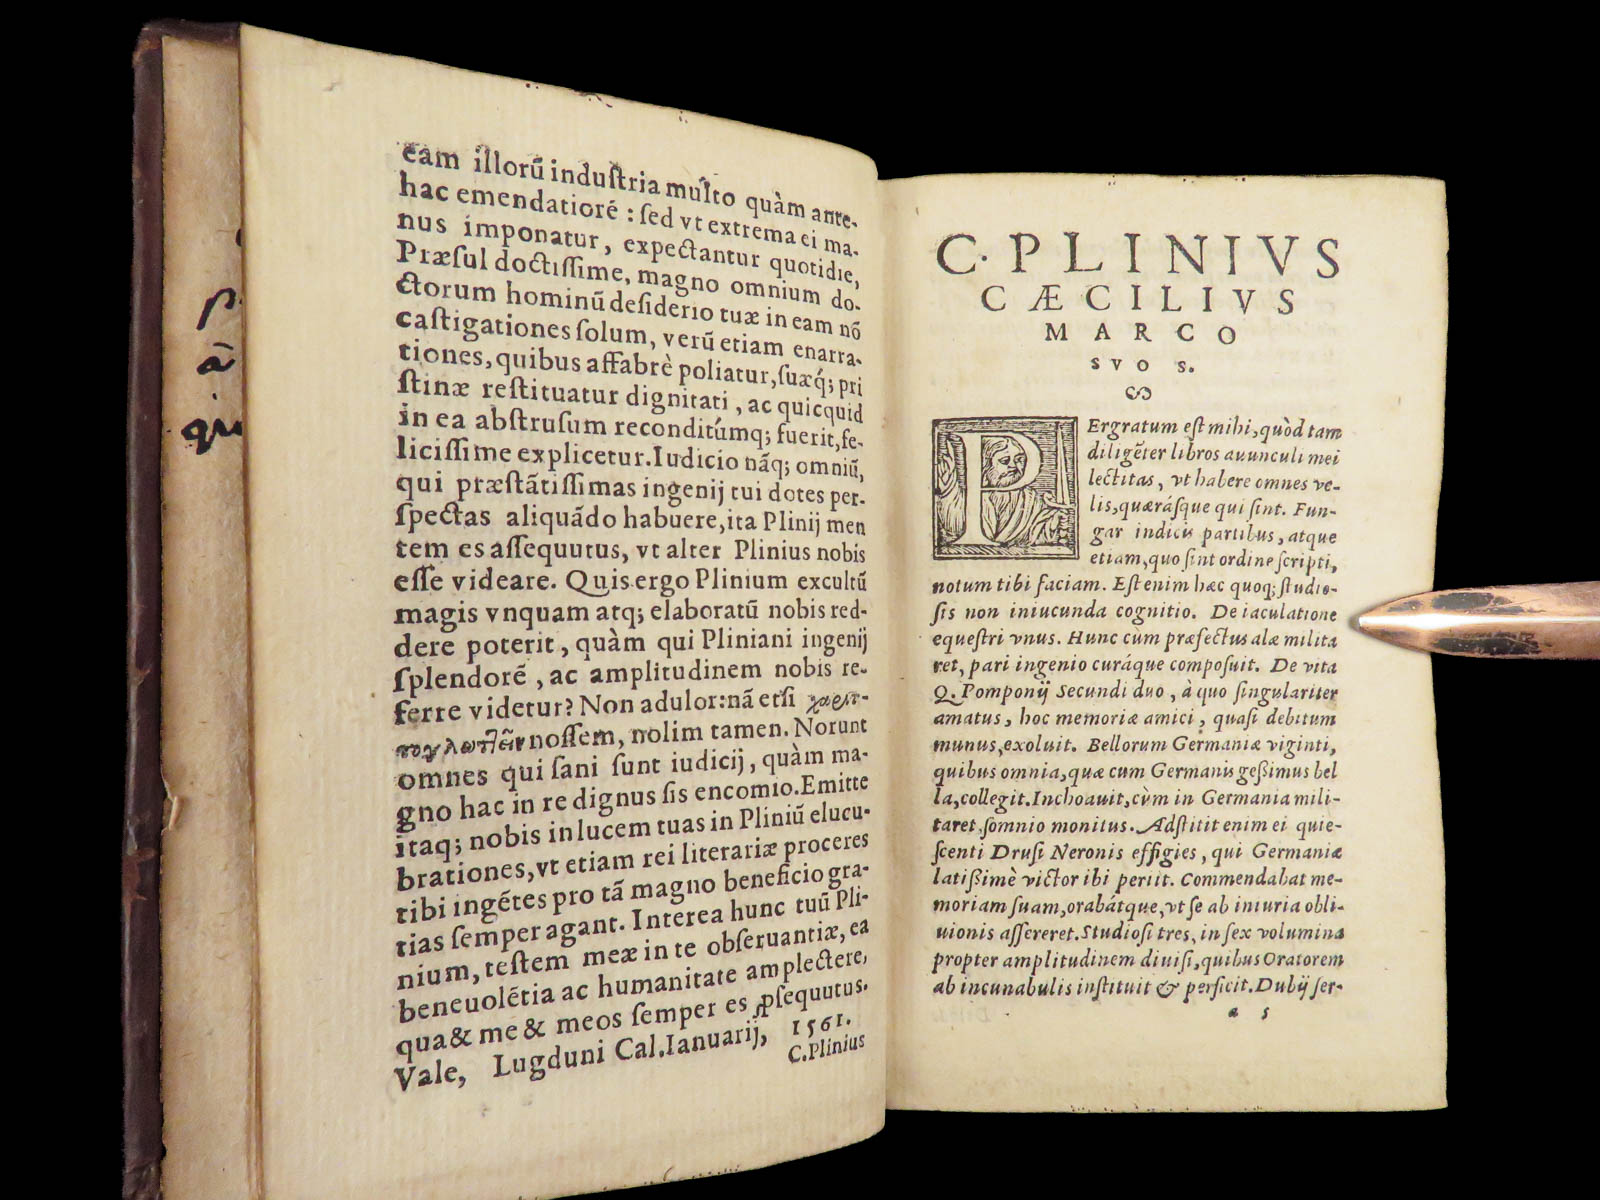 eam illorũ industria multo quàm ante-
hac emendatioré : sed vt extrema ei ma-
nus imponatur, expectantur quotidie,
Præsul doctissime, magno omnium do-
ctorum hominũ desiderio tuæ in eam nõ
castigationes solum, verũ etiam enarra-
tiones, quibus affabrè poliatur, suæq́; pri
stinæ restituatur dignitati, ac quicquid
in ea abstrusum reconditúmq; fuerit, fe-
licissime explicetur. Iudicio nãq; omniũ,
qui præstãtissimas ingenij tui dotes per-
spectas aliquãdo habuere, ita Plinij men
tem es assequutus, vt alter Plinius nobis
esse videare. Quis ergo Plinium excultũ
magis vnquam atq; elaboratũ nobis red-
dere poterit, quàm qui Pliniani ingenij
splendorẽ, ac amplitudinem nobis re-
ferre videtur? Non adulor: nã etsi
nossem, nolim tamen. Norunt
omnes qui sani sunt iudicij, quàm ma-
gno hac in re dignus sis encomio. Emitte
itaq; nobis in lucem tuas in Pliniũ elucu-
brationes, vt etiam rei literariæ proceres
tibi ingẽtes pro tã magno beneficio gra-
tias semper agant. Interea hunc tuũ Pli-
nium, testem meæ in te obseruantiæ, ea
beneuolẽtia ac humanitate amplectere,
qua & me & meos semper es ꝓsequutus.
Vale, Lugduni Cal. Ianuarij, 1561.
C. Plinius
à
qu
C. PLINIVS
CÆCILIVS
MARCO
SVO S.
PErgratum est mihi, quòd tam
diligẽter libros auunculi mei
lectitas, vt habere omnes ve-
lis, quærásque qui sint. Fun-
gar indicis partibus, atque
etiam, quo sint ordine scripti,
notum tibi faciam. Est enim hæc quoq; studio-
sis non iniucunda cognitio. De iaculatione
equestri vnus. Hunc cùm præfectus alæ milita
ret, pari ingenio curáque composuit. De vita
Q. Pomponij Secundi duo, à quo singulariter
amatus, hoc memoriæ amici, quasi debitum
munus, exoluit. Bellorum Germaniæ viginti,
quibus omnia, quæ cum Germanis gessimus bel
la, collegit. Inchoauit, cùm in Germania mili-
taret, somnio monitus. Adstitit enim ei quie-
scenti Drusi Neronis effigies, qui Germaniæ
latissimè victor ibi periit. Commendabat me-
moriam suam, orabátque, vt se ab iniuria obli-
uionis assereret. Studiosi tres, in sex volumina
propter amplitudinem diuisi, quibus Oratorem
ab incunabulis instituit & perficit. Dubij ser-
a 5